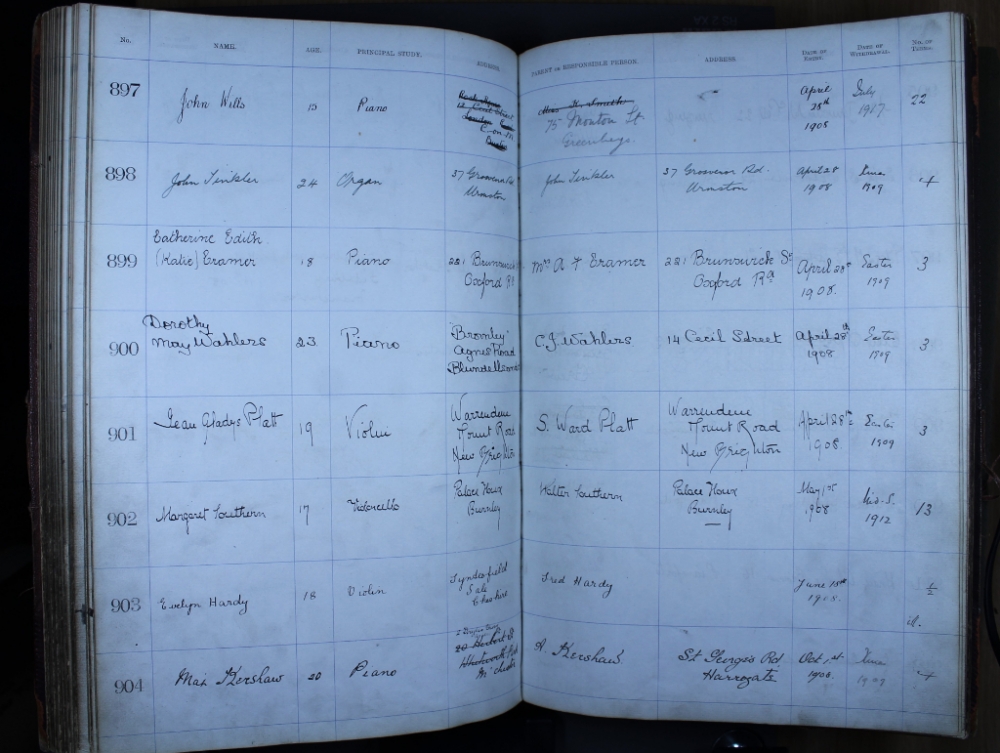 No. NAME. AGE. PRINCIPAL STUDY. ADDRESS. PARENT OR RESPONSIBLE PERSON. ADDRESS DATE OF ENTRY. DATE OF WITHDRAWAL. NO. OF TERMS.
897 John Wills Piano
75 Monton St
Greenheys.
April 28th 1908 July 1917 22
898 John Tinkler 24 Organ 37 Grosvenor Rd Urmston
John Tinkler 37 Grosvenor Rd. Urmston April 28 1908 June 1909 4
899 Catherine Edith (Katie) Cramer 18 Piano 221 Brunswick Oxford Rd
Mrs A F Cramer 221 Brunswick St Oxford Rd April 28th 1908. Easter 1909 3
900 Dorothy May Wahlers 23 Piano "Bromley" Agnes Road Blundellsands
C J Wahlers 14 Cecil Street April 28th 1908 Easter 1909 3
901 Jean Gladys Platt 19 Violin Warrendene Mount Road New Brighton
S. Ward Platt Warrendene Mount Road New Brighton April 28th 1908 Easter 1909 3
902 Margaret Southern 17 Violoncello Palace House Burnley
Walter Southern Palace House Burnley May 1st 1908 Mid. S. 1912 13
903 Evelyn Hardy 18 Violin Sale Cheshire
Fred Hardy June 15th 1908. ½
ill.
904 Max Kershaw 20 Piano 20 Herbert St M'chester
A Kershaw. St George's Rd Harrogate Oct 1st 1908. June 1909 4